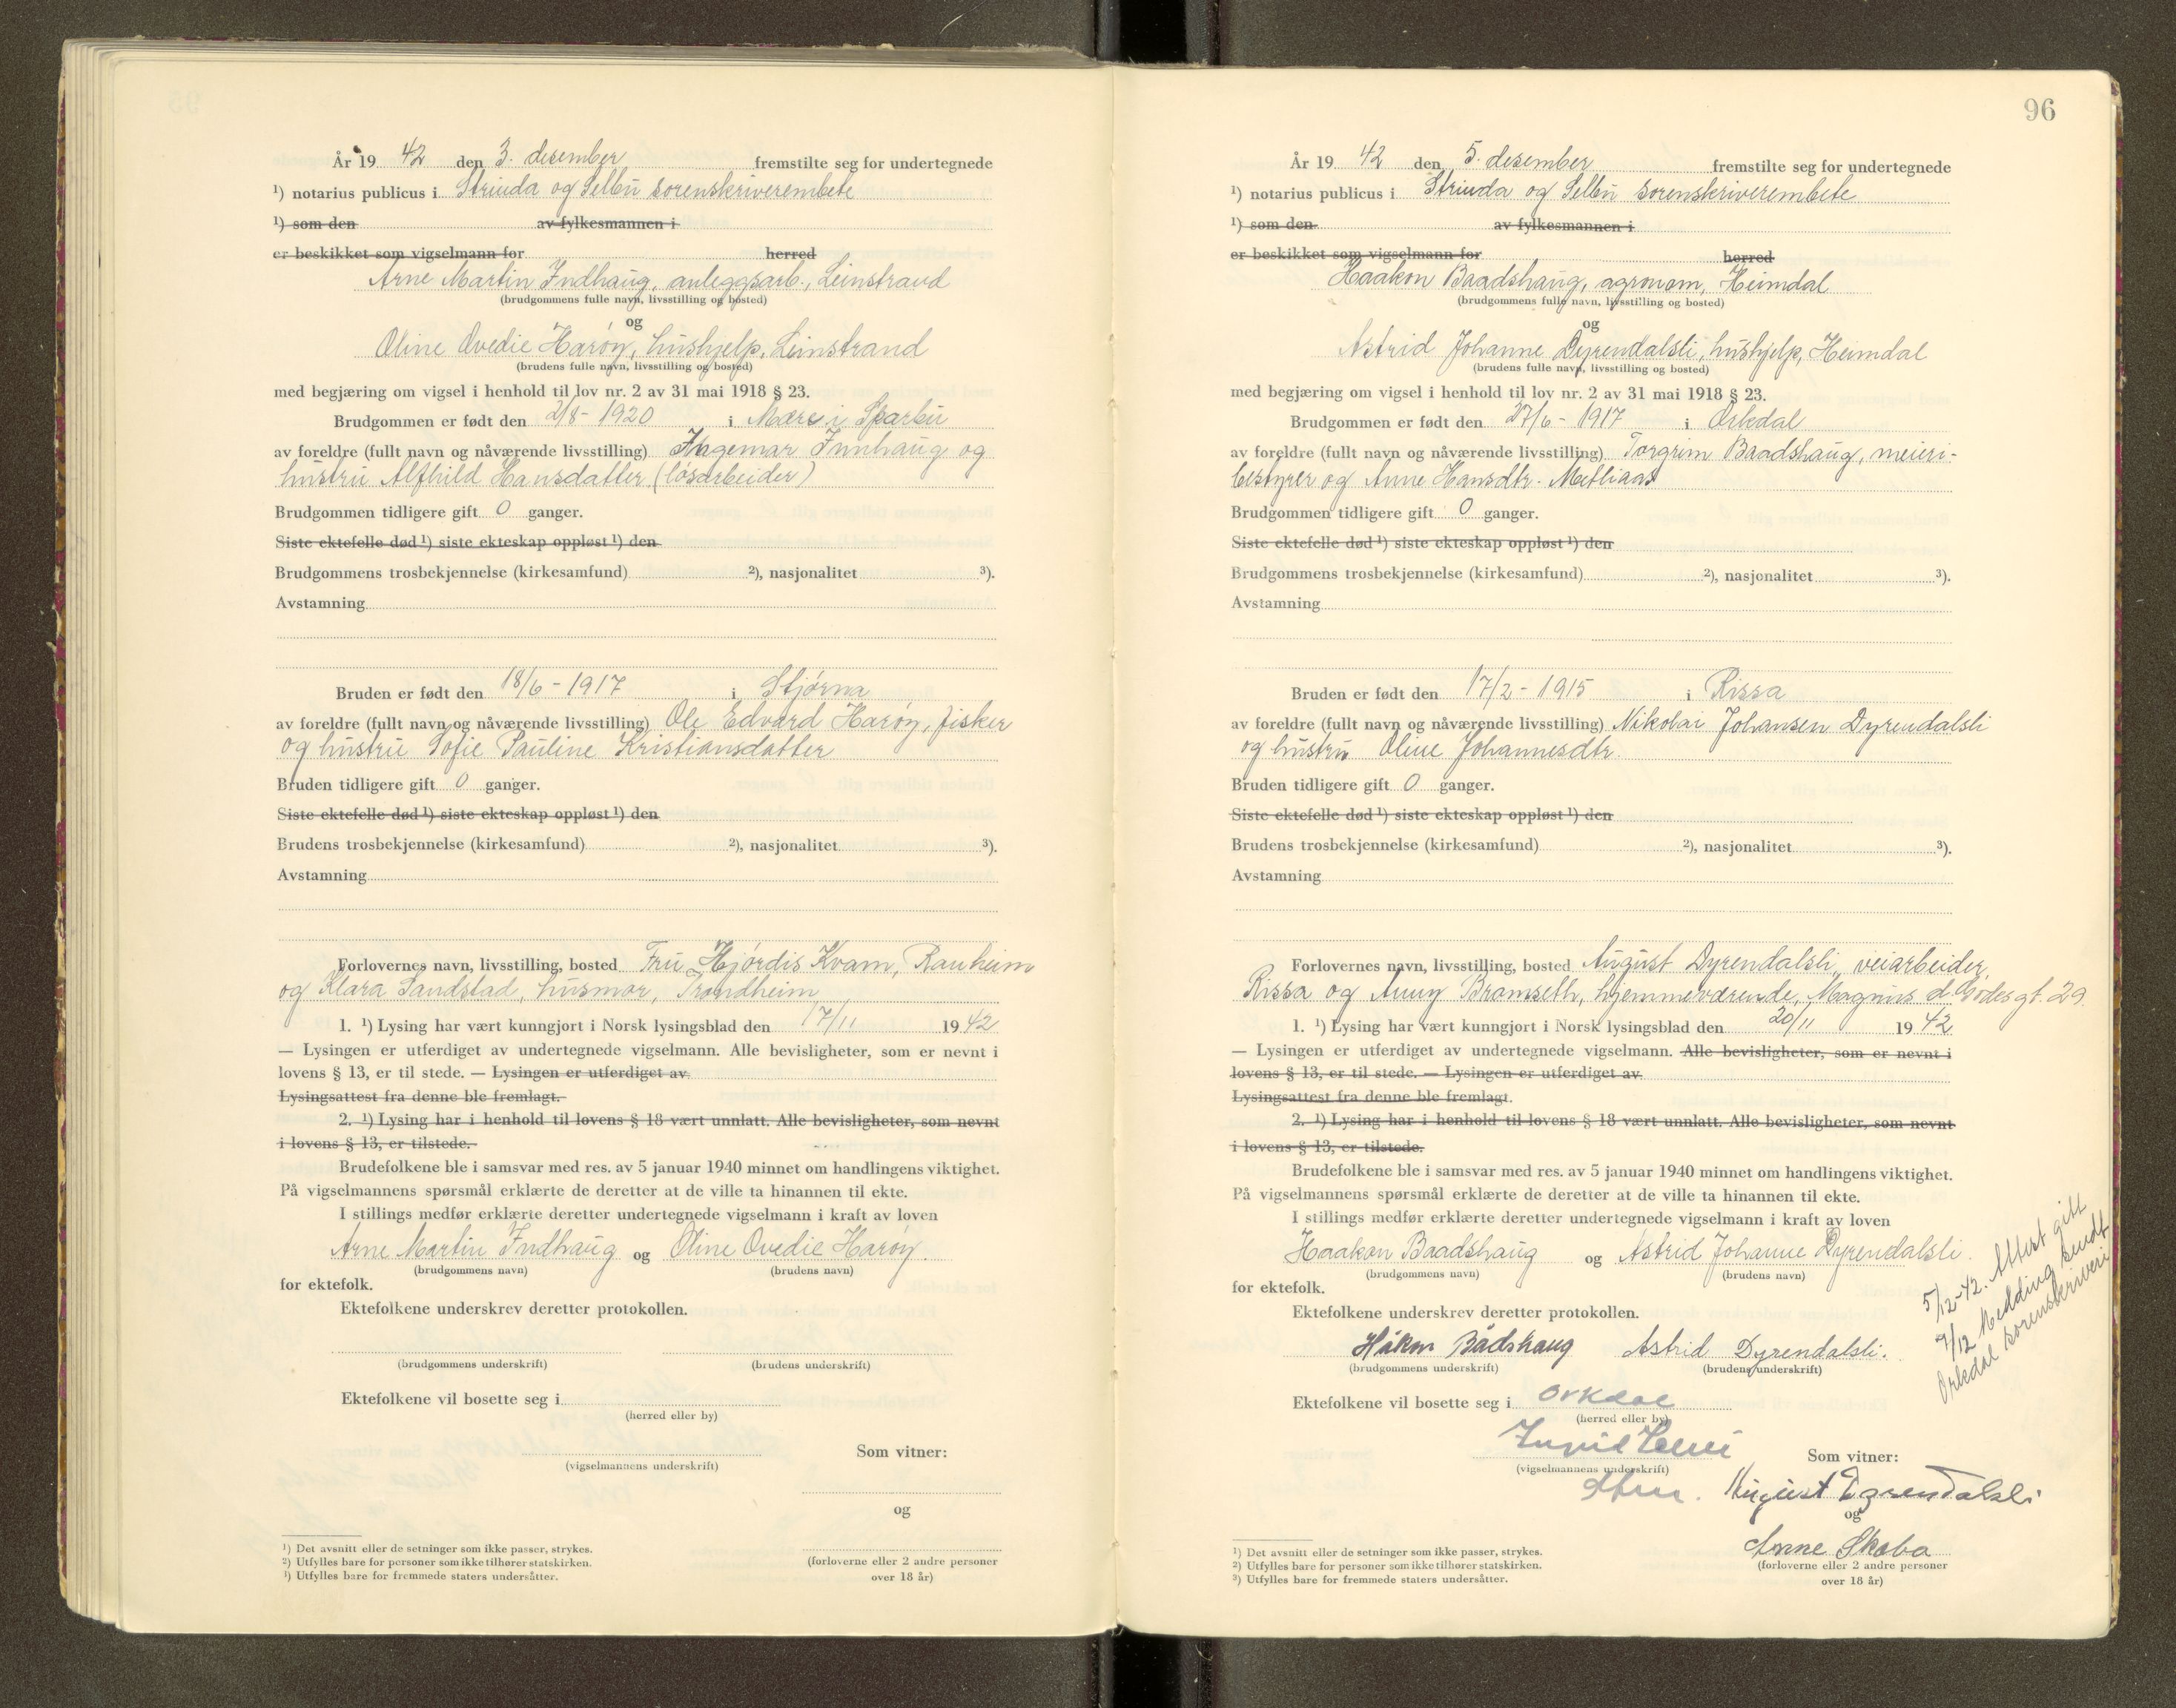 År 19 42 den 3. desember fremstilte seg for undertegnede
¹) notarius publicus i Strinda og Selbu sorenskriverembete
¹) som den av fylkesmannen i
er beskikket som vigselmann for herred
Arne Martin Indhaug, anleggsarb., Leinstrand
(brudgommens fulle navn, livsstilling og bosted)
og
Oline Ovedie Harøy, hushjelp, Leinstrand
(brudens fulle navn, livsstilling og bosted)
med begjæring om vigsel i henhold til lov nr. 2 av 31 mai 1918 § 23.
Brudgommen er født den 2/8 - 1920 i Mære i Sparbu
av foreldre (fullt navn og nåværende livsstilling) Ingemar Innhaug og
hustru Alfhild Hansdatter (løsarbeider)
Brudgommen tidligere gift 0 ganger.
Siste ektefelle død ¹) siste ekteskap oppløst ¹) den
Brudgommens trosbekjennelse (kirkesamfund) ²), nasjonalitet ³).
Avstamning
Bruden er født den 18/6 - 1917 i Stjørna
av foreldre (fullt navn og nåværende livsstilling) Ole Edvard Harøy, fisker
og hustru Sofie Pauline Kristiansdatter
Bruden tidligere gift 0 ganger.
Siste ektefelle død ¹) siste ekteskap oppløst ¹) den
Brudens trosbekjennelse (kirkesamfund) ²), nasjonalitet ³).
Avstamning
Forlovernes navn, livsstilling, bosted Fru Hjørdis Kvam, Ranheim
og Klara Sandstad, husmor, Trondheim
1. ¹) Lysing har vært kunngjort i Norsk lysingsblad den 17/11 19 42
— Lysingen er utferdiget av undertegnede vigselmann. Alle bevisligheter, som er nevnt i
lovens § 13, er til stede. — Lysingen er utferdiget av
Lysingsattest fra denne ble fremlagt.
2. ¹) Lysing har i henhold til lovens § 18 vært unnlatt. Alle bevisligheter, som nevnt
i lovens § 13, er tilstede.
Brudefolkene ble i samsvar med res. av 5 januar 1940 minnet om handlingens viktighet.
På vigselmannens spørsmål erklærte de deretter at de ville ta hinannen til ekte.
I stillings medfør erklærte deretter undertegnede vigselmann i kraft av loven
Arne Martin Indhaug og Oline Ovedie Harøy.
(brudgommens navn) (brudens navn)
for ektefolk.
Ektefolkene underskrev deretter protokollen.
(brudgommens underskrift) (brudens underskrift)
Ektefolkene vil bosette seg i
(herred eller by)
Som vitner:
(vigselmannens underskrift)
og
(forloverne eller 2 andre personer
over 18 år)
¹) Det avsnitt eller de setninger som ikke passer, strykes.
²) Utfylles bare for personer som ikke tilhører statskirken.
¹) Utfylles bare for fremmede staters undersåtter.
96
År 19 42 den 5. desember fremstilte seg for undertegnede
¹) notarius publicus i Strinda og Selbu sorenskriverembete
¹) som den av fylkesmannen i
er beskikket som vigselmann for herred
Haakon Baadshaug, agronom, Heimdal
(brudgommens fulle navn, livsstilling og bosted)
og
Astrid Johanne Dyrendalsli, hushjelp, Heimdal
(brudens fulle navn, livsstilling og bosted)
med begjæring om vigsel i henhold til lov nr. 2 av 31 mai 1918 § 23.
Brudgommen er født den 27/6 - 1917 i Orkdal
av foreldre (fullt navn og nåværende livsstilling) Torgrim Baadshaug, meieri-
bestyrer og Anne Hansdtr.
Brudgommen tidligere gift 0 ganger.
Siste ektefelle død ¹) siste ekteskap oppløst ¹) den
Brudgommens trosbekjennelse (kirkesamfund) ²), nasjonalitet ³).
Avstamning
Bruden er født den 17/2 - 1915 i Rissa
av foreldre (fullt navn og nåværende livsstilling) Nikolai Johansen Dyrendalsli
og hustru Oline Johannesdtr.
Bruden tidligere gift 0 ganger.
Siste ektefelle død ¹) siste ekteskap oppløst ¹) den
Brudens trosbekjennelse (kirkesamfund) ²), nasjonalitet ³).
Avstamning
Forlovernes navn, livsstilling, bosted August Dyrendalsli, veiarbeider,
Rissa og Anny Bromseth, hjemmeværende, Magnus d. Godesgt. 29.
1. ¹) Lysing har vært kunngjort i Norsk lysingsblad den 20/11 19 42
— Lysingen er utferdiget av undertegnede vigselmann. Alle bevisligheter, som er nevnt i
lovens § 13, er til stede. — Lysingen er utferdiget av
Lysingsattest fra denne ble fremlagt.
2. ¹) Lysing har i henhold til lovens § 18 vært unnlatt. Alle bevisligheter, som nevnt
i lovens § 13, er tilstede.
Brudefolkene ble i samsvar med res. av 5 januar 1940 minnet om handlingens viktighet.
På vigselmannens spørsmål erklærte de deretter at de ville ta hinannen til ekte.
I stillings medfør erklærte deretter undertegnede vigselmann i kraft av loven
Haakon Baadshaug og Astrid Johanne Dyrendalsli.
(brudgommens navn) (brudens navn)
for ektefolk.
Ektefolkene underskrev deretter protokollen.
Håkon Bådshaug Astrid Dyrendalsli.
(brudgommens underskrift) (brudens underskrift)
Ektefolkene vil bosette seg i Orkdal
(herred eller by)
Som vitner:
(vigselmannens underskrift)
August Dyrendalsli
og
Anne Skabo
(forloverne eller 2 andre personer
over 18 år)
¹) Det avsnitt eller de setninger som ikke passer, strykes.
²) Utfylles bare for personer som ikke tilhører statskirken.
³) Utfylles bare for fremmede staters undersåtter.
5/12-42. Attest gitt
7/12 Melding sendt
Orkedal sorenskriveri